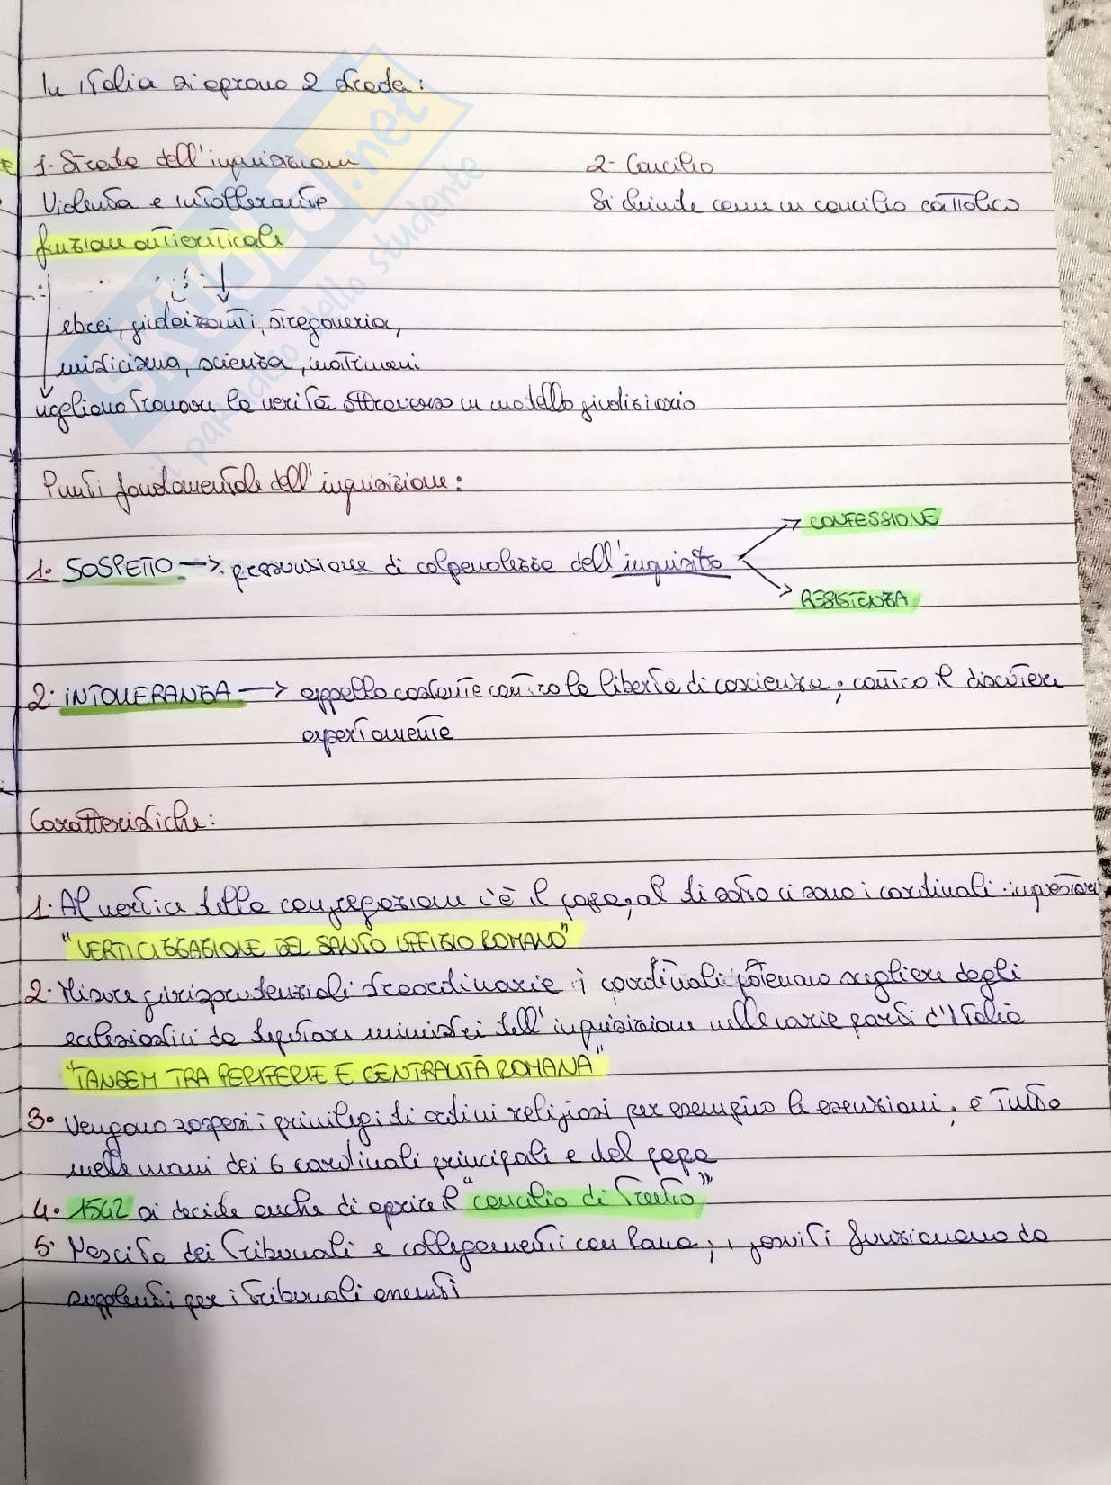 In Italia si aprono 2 strade:
1- Strada dell'inquisizione
2- Concilio
Violenta e intollerante
Si chiude come un concilio cattolico
funzioni antiereticali
ebrei, giudaizzanti, stregoneria,
medicina, scienza, matrimoni
vogliono trovare la verità attraverso un modello giudiziario
Punti fondamentale dell'inquisizione:
CONFESSIONE
1. SOSPETTO → persuasione di colpevolezza dell'inquisito
RESISTENZA
2. INTOLLERANZA → appello costante contro la libertà di coscienza; contro il discutere
apertamente
Caratteristiche:
1. Al vertice della congregazione c'è il papa, al di sotto ci sono i cardinali inquisitori
"VERTICIZZAZIONE DEL SANTO UFFIZIO ROMANO"
2. Misure giurisprudenziali straordinarie i cardinali potevano scegliere degli
ecclesiastici da deputare ministri dell'inquisizione nelle varie parti d'Italia
"TANDEM TRA PERIFERIE E CENTRALITÀ ROMANA"
3. Vengono sospesi i privilegi di ordini religiosi per esempio le esenzioni; è tutto
nelle mani dei 6 cardinali principali e del papa
4. 1542 si decide anche di aprire il "concilio di Trento"
5. Nascita dei Tribunali e collegamenti con Roma; i gesuiti funzionano da
supplenti per i tribunali
SKUOLA.net
il paradiso dello studente